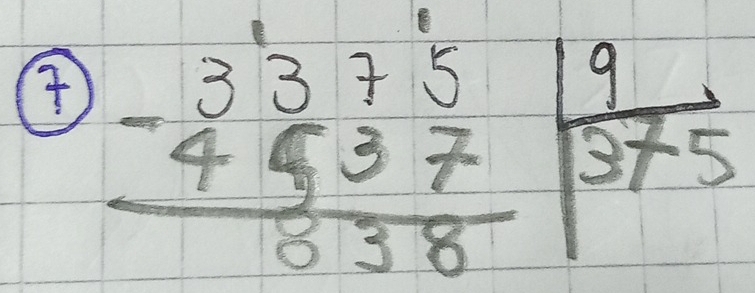 7 3375 9
- 4537 375
838